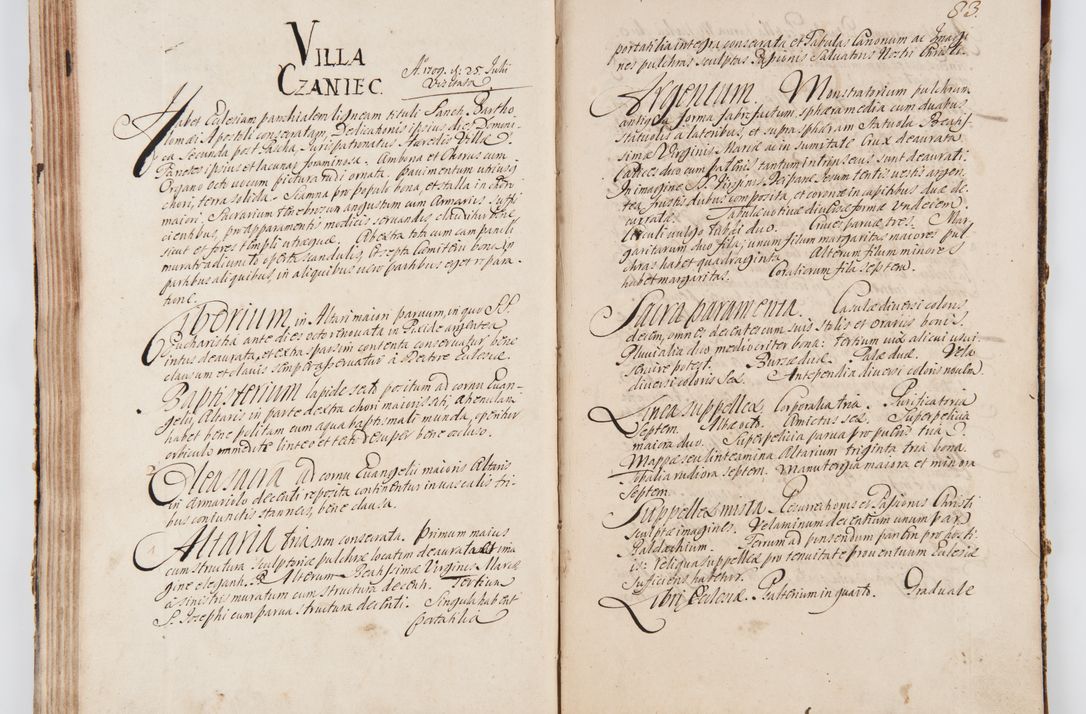 VILLA
CZANIEC.
Aº 1709. d: 25. Julii
Visitata
Habet Ecclesiam parochialem ligneam tituli Sancti Bartho
lomæi Apostoli consecratam, Dedicationis ipsius dies Domini
ca Secunda post Pascha. Juris patronatus Hæredis Villæ.
Parietes ipsius et lacunar foraminosæ. Ambona et Chorus cum
Organo octo vocum pictura rudi ornata. Pavimentum utriusq
chori, terra solida. Scamna pro populo bona, et stalla in choro
maiori. Sacrarium tenebrosum angustum cum Armariis suffi
cientibus, pro apparamentis modicis servandis clauditur bene
sicut et fores templi utræque. Ab extra tota cum campanili
murato adiuncti operta scandulis, Excepta Cœmiterii bona in
partibus aliquibus, in aliquibus vero partibus eget repara
tione.
Ciborium in Altari maiori parvum, in quo SS.
Eucharistia ante dies octo renovata in Pixide argentea
intus deaurata, et extra passim contenta conservatur bene
clausum et clavis semper asservatur à Rectore Ecclesiæ.
Baptisterium lapide secto positum ad cornu Evan-
gelii Altaris in parte dextra chori maioris sati, ahenulam
habet bene politam cum aqua baptismali munda, operitur
orbiculo immediate linteo et tecto desuper bene ocluso.
Olea sacra ad cornu Evangelii maioris Altaris
in Armariolo decenti reposita continentur in vasculis tri-
bus coniunctis stanneis, bene clausa.
Altaria tria non consecrata. Primum maius
cum structura sculptoriæ pulchræ locatim deaurata et ima
gine eleganti. Alterum Beatissimæ Virginis Mariæ
a sinistris muratum cum structura decenti. Tertium
S. Josephi cum parva structura decenti. Singula habent
Portatilia
83.
portatilia integra consecrata et Tabulas Canonum ac Imagi
nes pulchras sculptas Passionis Salvatoris Nostri Christi.
Argentum. Monstratorium pulchrum
antiqua forma fabrefactum, sphæra media cum duabus
statuolis a lateribus, et supra sphæram Statuola Beatis
simæ Virginis Mariæ ac in sumitate Crux deaurata.
Calices duo cum patenis tantum intrinsecus sunt deaurati.
In imagine SS. Virginis Deiparæ Jesum tentis vestis argen
tea frustis duabus composita, et coronæ in capitibus duæ de
curtatæ. Tabulæ votivæ diversæ formæ undecim.
Circuli vulgo Tabki duo. Cruces parvæ tres. Mar
garitarum duo fila, unum filum margaritas maiores pul
chras habet quadraginta. Alterum filum minores
habet margaritas. Coraliorum fila septem.
Sacra paramenta. Casulæ diversi coloris
decem, omnes decentes cum suis stolis et orariis bonis.
Pluvialia duo mediocriter bona: tertium vix alicui usui
servire potest. Bursæ duæ. Palæ duæ. Vela
diversi coloris sex. Antependia diversi coloris novem.
Linea suppellex. Corporalia tria. Purificatoria
Septem. Albæ octo. Amictus sex. Superpelicia
maiora duo. Superpelicia parva pro pueris tria.
Mappæ seu linteamina Altarium triginta tria bona.
Tobalia rudiora septem. Manutergia maiora et minora
Septem.
Suppellex mixta. Resurrectionis et Passionis Christi
sculptæ imagines. Velaminum decentium unum par
Baldachium. Ferrum ad pinsendum partim pro hosti
is. Reliqua suppellex pro tenuitate proventuum Ecclesiæ
sufficiens habetur.
Libri Ecclesiæ. Psalterium in quarto. Graduale